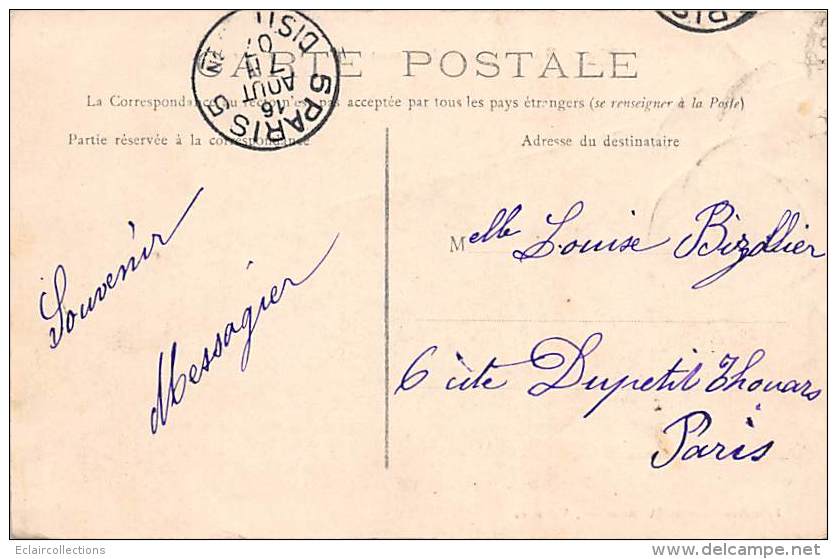 CARTE POSTALE
La Correspondance au recto n'est pas acceptée par tous les pays étrangers (se renseigner à la Poste)
Partie réservée à la correspondance
Adresse du destinataire
5 PARIS 5
DISTI
16
AOUT
07
PARIS
Souvenir
Messagier
Melle Louise Bizollier
6 cité Dupetit Thouars
Paris
Eclaircollections
delcampe.net